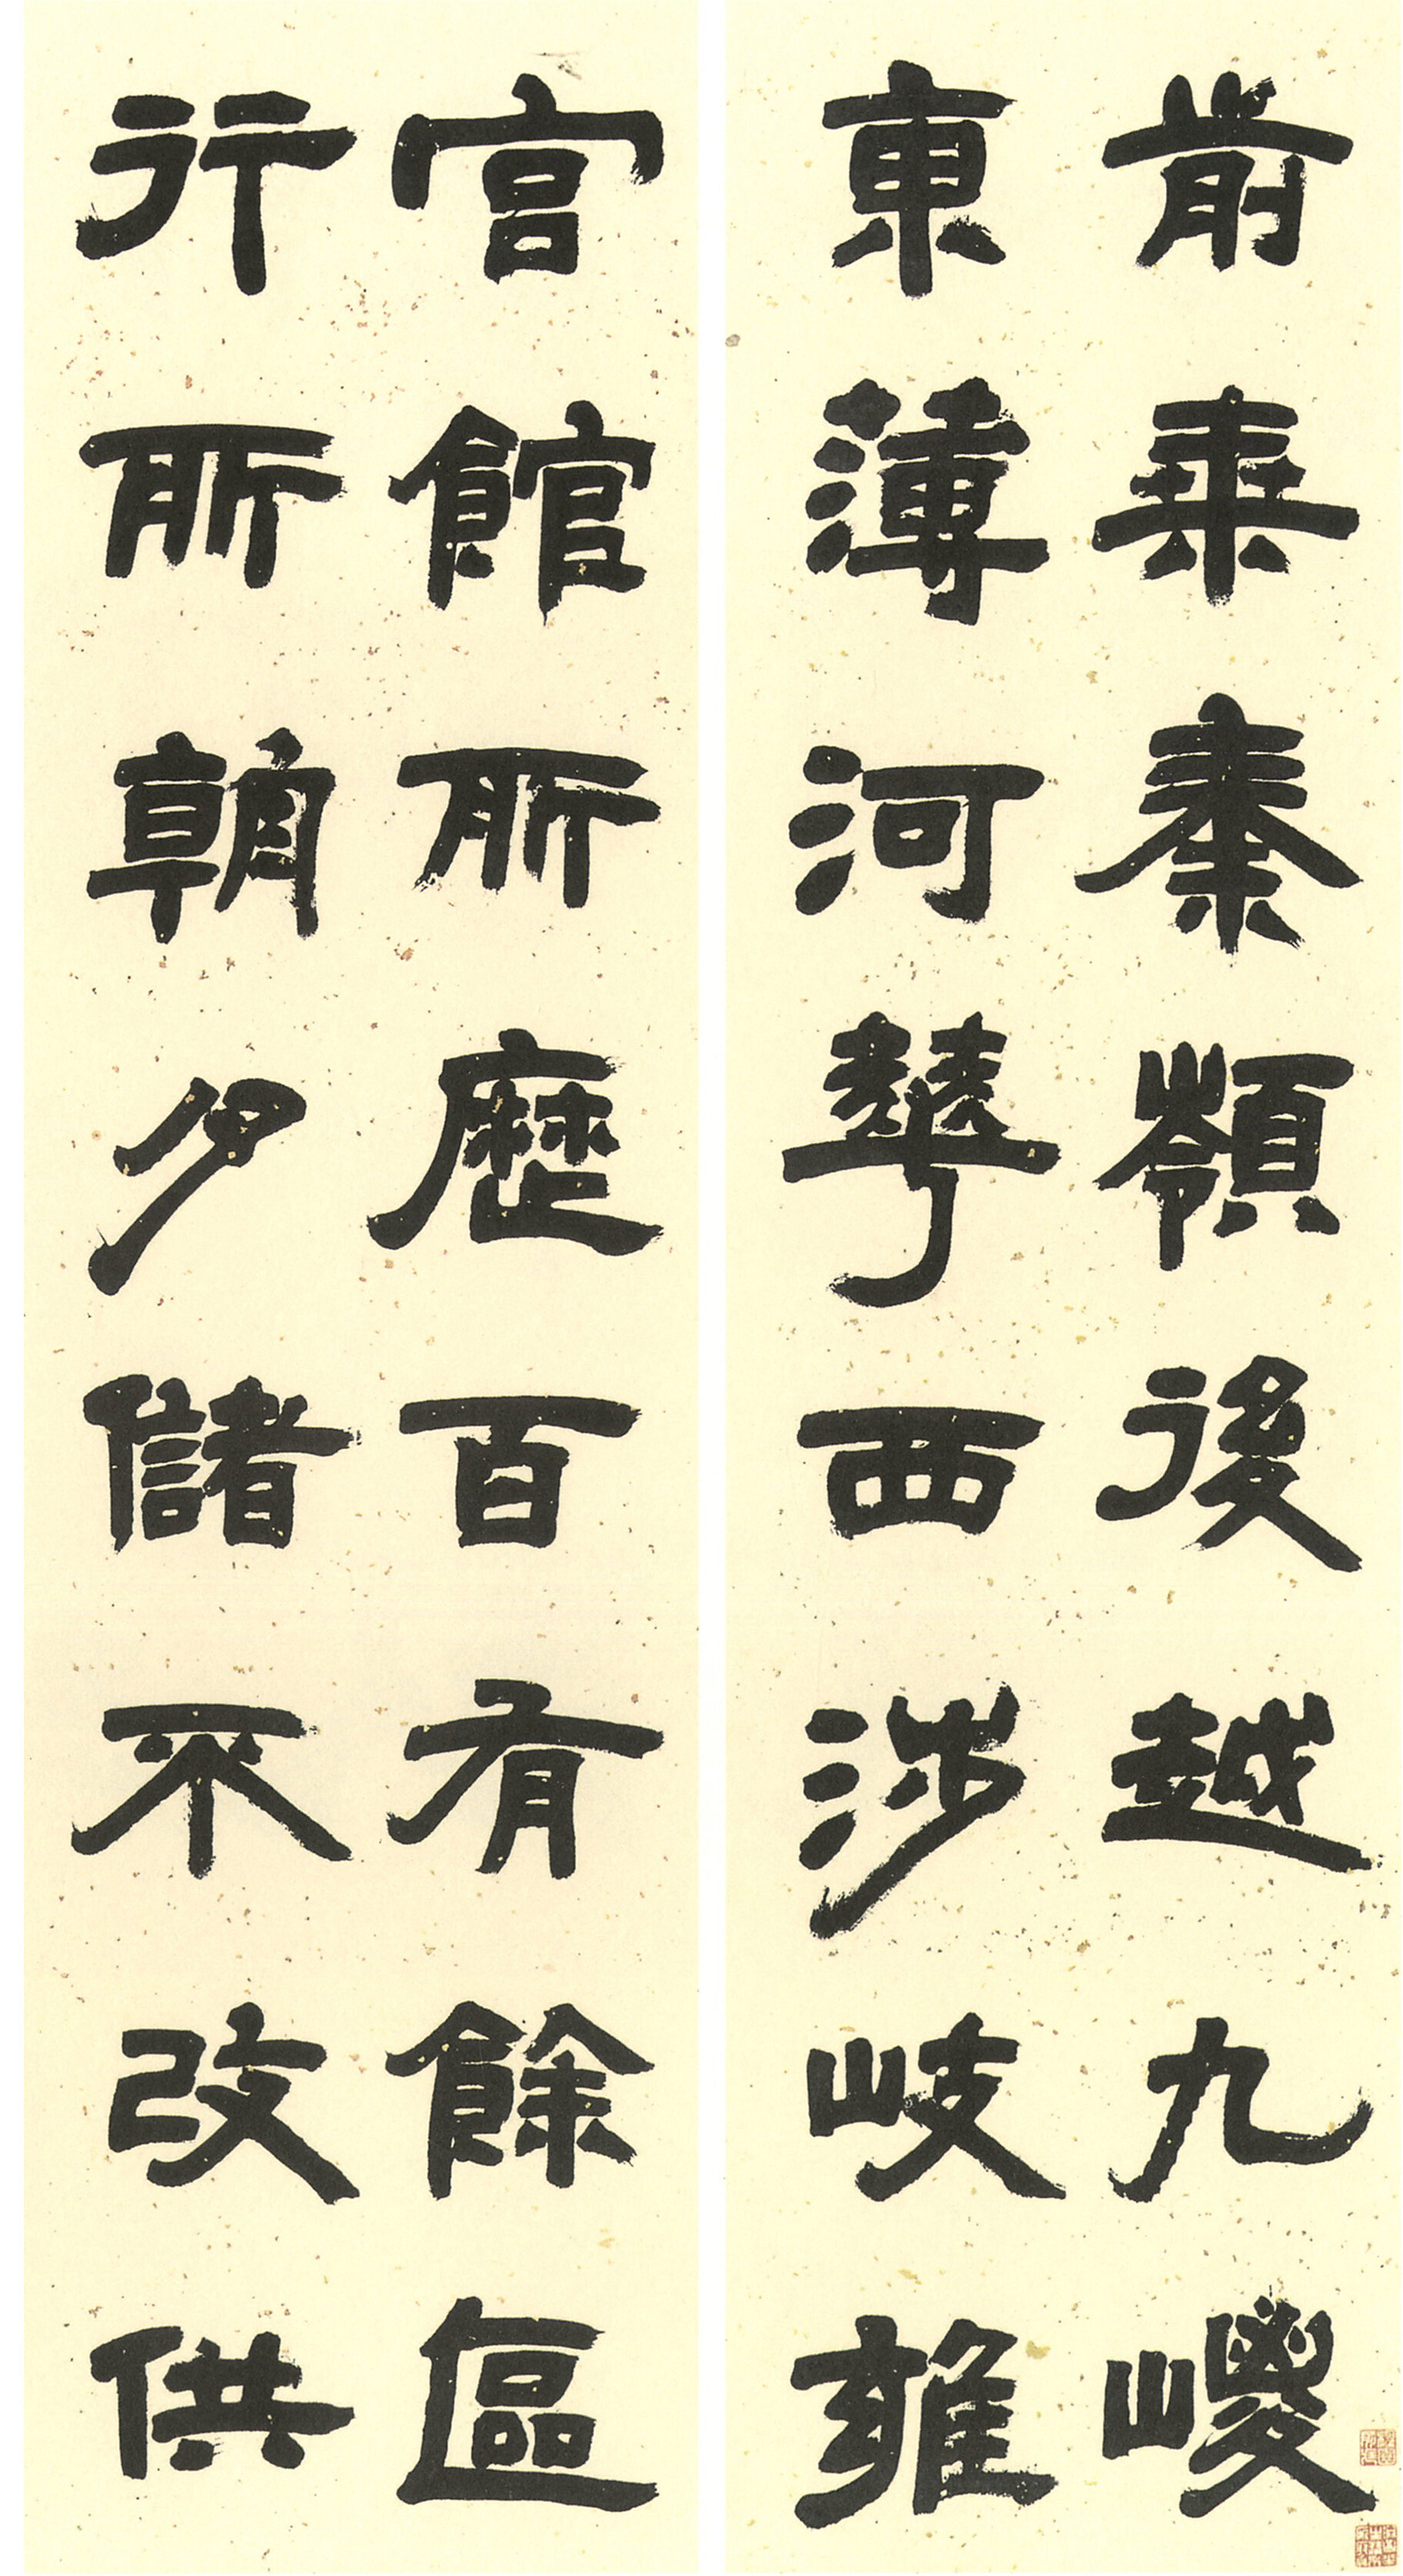 前乘秦嶺後越九嵕
東薄河華西涉岐雍
宮館所歷百有餘區
行所朝夕儲不改供